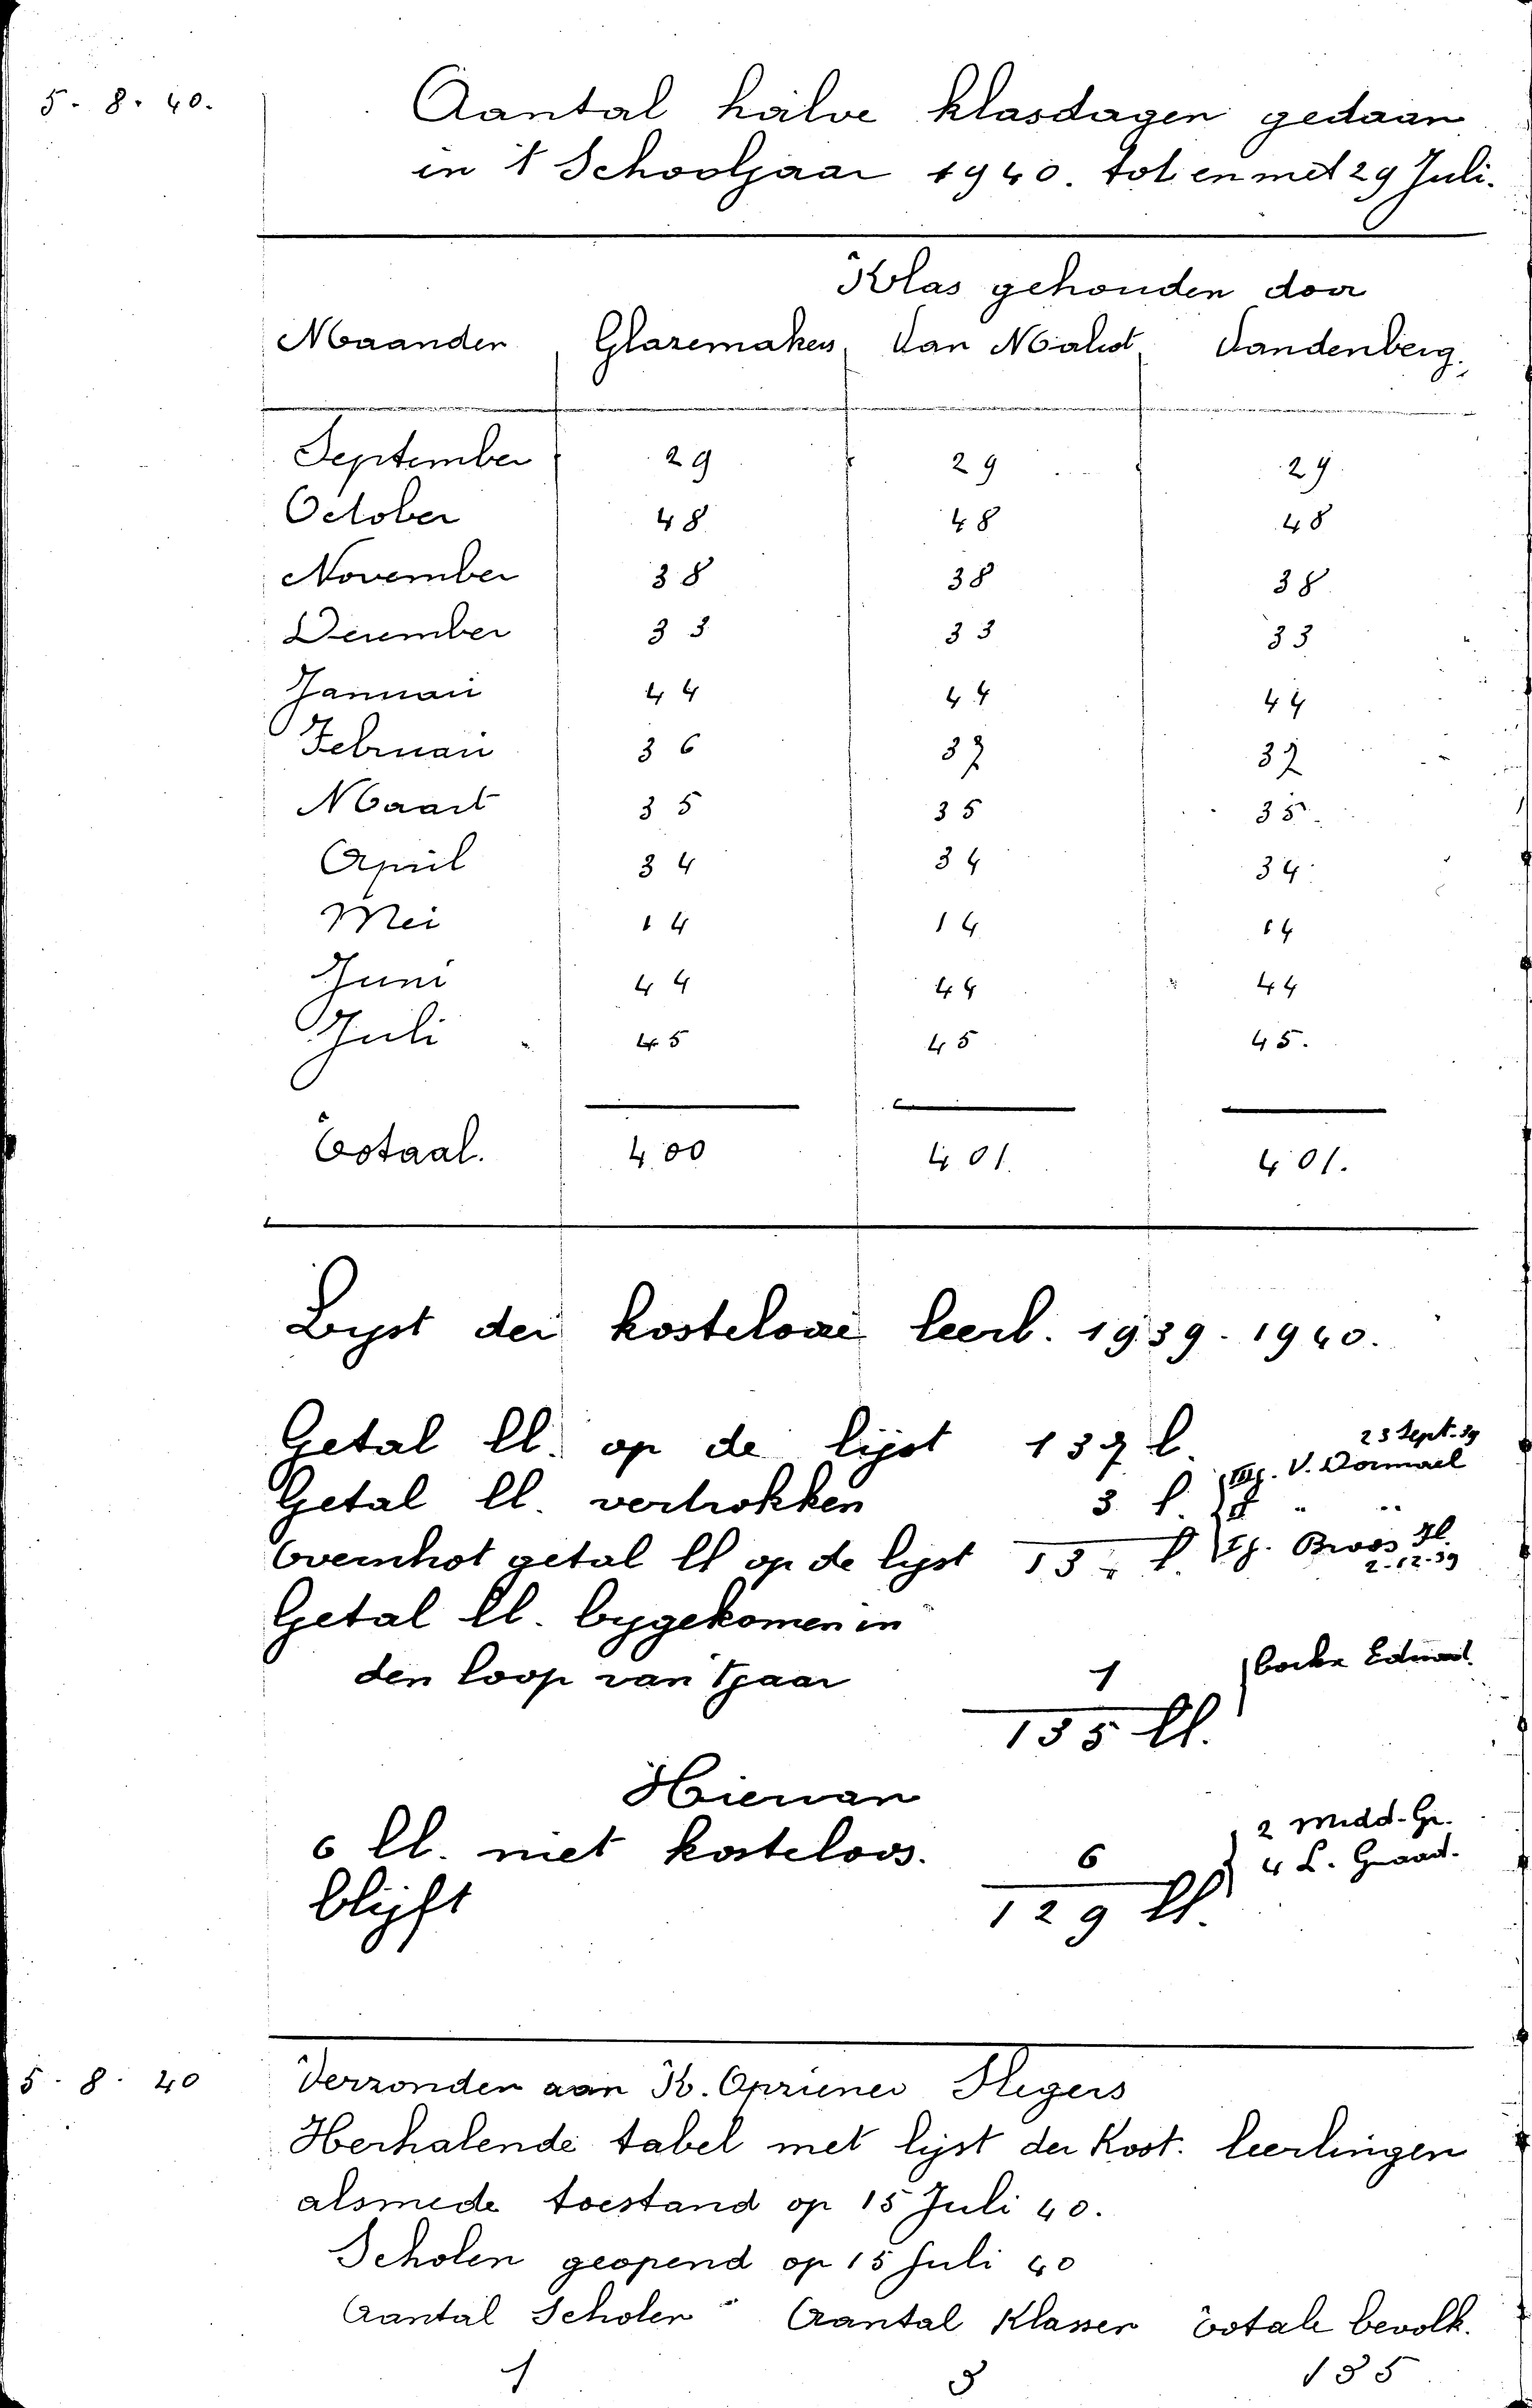 5 - 8 - 40.
Aantal halve klasdagen gedaan
in 't Schooljaar 1940. tot en met 29 Juli.
Klas gehouden door
Maanden Glazemakers Van Malcot Vandenberg.
September 29 29 29
October 48 48 48
November 38 38 38
December 33 33 33
Januari 44 44 44
Februari 36 37 37
Maart 35 35 35
April 34 34 34
Mei 14 14 14
Juni 44 44 44
Juli 45 45 45.
Totaal. 400 401. 401.
Lyst der kosteloze leerl. 1939 - 1940.
Getal ll. op de lijst 137 l. 23 Sept. 39
Getal ll. vertrokken 3 l. V. Dormael
" "
Overschot getal ll op de lyst 134 l. Broos
2-12-39
Getal ll. bygekomen in
den loop van 't jaar 1 Edward.
135 ll.
Hiervan
6 ll. niet kosteloos. 6 2 Midd-Gr.
4 L. Graad.
blijft 129 ll.
5 - 8 - 40 Verzonden aan K. Opziener Slegers
Herhalende tabel met lijst der Kost. leerlingen
alsmede toestand op 15 Juli 40.
Scholen geopend op 15 Juli 40
Aantal Scholen Aantal Klassen Totale bevolk.
1 3 135